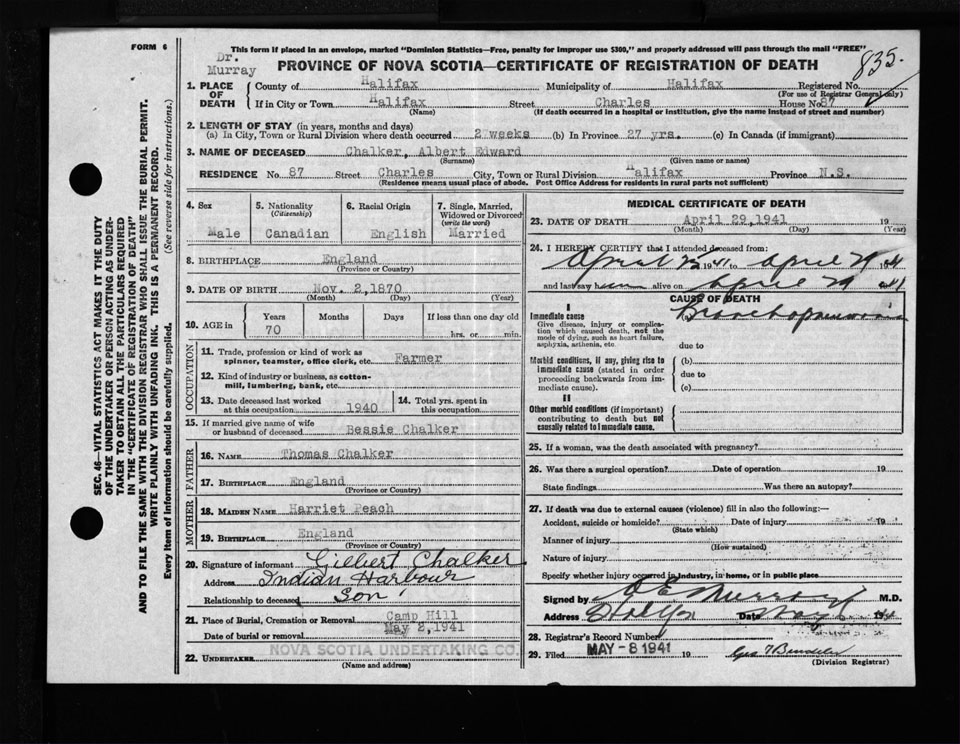 FORM 6
This form if placed in an envelope, marked "Dominion Statistics—Free, penalty for improper use $300," and properly addressed will pass through the mail "FREE"
Dr. Murray
PROVINCE OF NOVA SCOTIA—CERTIFICATE OF REGISTRATION OF DEATH
835.
1. PLACE OF DEATH
County of Halifax Municipality of Halifax Registered No.
(For use of Registrar General only)
If in City or Town Halifax Street Charles House No. 87
(Name) (If death occurred in a hospital or institution, give the name instead of street and number)
2. LENGTH OF STAY (in years, months and days)
(a) In City, Town or Rural Division where death occurred 2 weeks (b) In Province 27 yrs. (c) In Canada (if immigrant)
3. NAME OF DECEASED Chalker, Albert Edward
(Surname) (Given name or names)
RESIDENCE No. 87 Street Charles City, Town or Rural Division Halifax Province N.S.
(Residence means usual place of abode. Post Office Address for residents in rural parts not sufficient)
4. Sex Male
5. Nationality (Citizenship) Canadian
6. Racial Origin English
7. Single, Married, Widowed or Divorced (write the word) Married
8. BIRTHPLACE England
(Province or Country)
9. DATE OF BIRTH Nov. 2,1870
(Month) (Day) (Year)
10. AGE in Years 70 Months Days If less than one day old
hrs. or min.
OCCUPATION
11. Trade, profession or kind of work as spinner, teamster, office clerk, etc. Farmer
12. Kind of industry or business, as cotton-mill, lumbering, bank, etc.
13. Date deceased last worked at this occupation 1940
14. Total yrs. spent in this occupation
15. If married give name of wife or husband of deceased Bessie Chalker
FATHER
16. NAME Thomas Chalker
17. BIRTHPLACE England
(Province or Country)
MOTHER
18. MAIDEN NAME Harriet Peach
19. BIRTHPLACE England
(Province or Country)
20. Signature of informant Gilbert Chalker
Address Indian Harbour
Relationship to deceased Son
21. Place of Burial, Cremation or Removal Camp Hill
Date of burial or removal May 2,1941
22. UNDERTAKER NOVA SCOTIA UNDERTAKING CO.
(Name and address)
MEDICAL CERTIFICATE OF DEATH
23. DATE OF DEATH April 29,1941 19
(Month) (Day) (Year)
24. I HEREBY CERTIFY that I attended deceased from:
April 1941 to April 29 1941
and last saw him alive on April 29 1941
CAUSE OF DEATH
I
Immediate cause Bronchopneumonia
Give disease, injury or complication which caused death, not the mode of dying, such as heart failure, asphyxia, asthenia, etc.
due to
Morbid conditions, if any, giving rise to immediate cause (stated in order proceeding backwards from immediate cause).
(b)
due to
(c)
II
Other morbid conditions (if important) contributing to death but not causally related to immediate cause.
25. If a woman, was the death associated with pregnancy?
26. Was there a surgical operation? Date of operation 19
State findings Was there an autopsy?
27. If death was due to external causes (violence) fill in also the following:—
Accident, suicide or homicide? Date of injury 19
(State which)
Manner of injury
(How sustained)
Nature of injury
Specify whether injury occurred in industry, in home, or in public place
Signed by Murray M.D.
Address Halifax Date May
28. Registrar's Record Number
29. Filed MAY - 8 1941 19
(Division Registrar)
SEC. 46—VITAL STATISTICS ACT MAKES IT THE DUTY
OF THE UNDERTAKER OR PERSON ACTING AS UNDER-
TAKER TO OBTAIN ALL THE PARTICULARS REQUIRED
IN THE "CERTIFICATE OF REGISTRATION OF DEATH"
AND TO FILE THE SAME WITH THE DIVISION REGISTRAR WHO SHALL ISSUE THE BURIAL PERMIT.
WRITE PLAINLY WITH UNFADING INK. THIS IS A PERMANENT RECORD.
Every item of information should be carefully supplied. (See reverse side for instructions.)